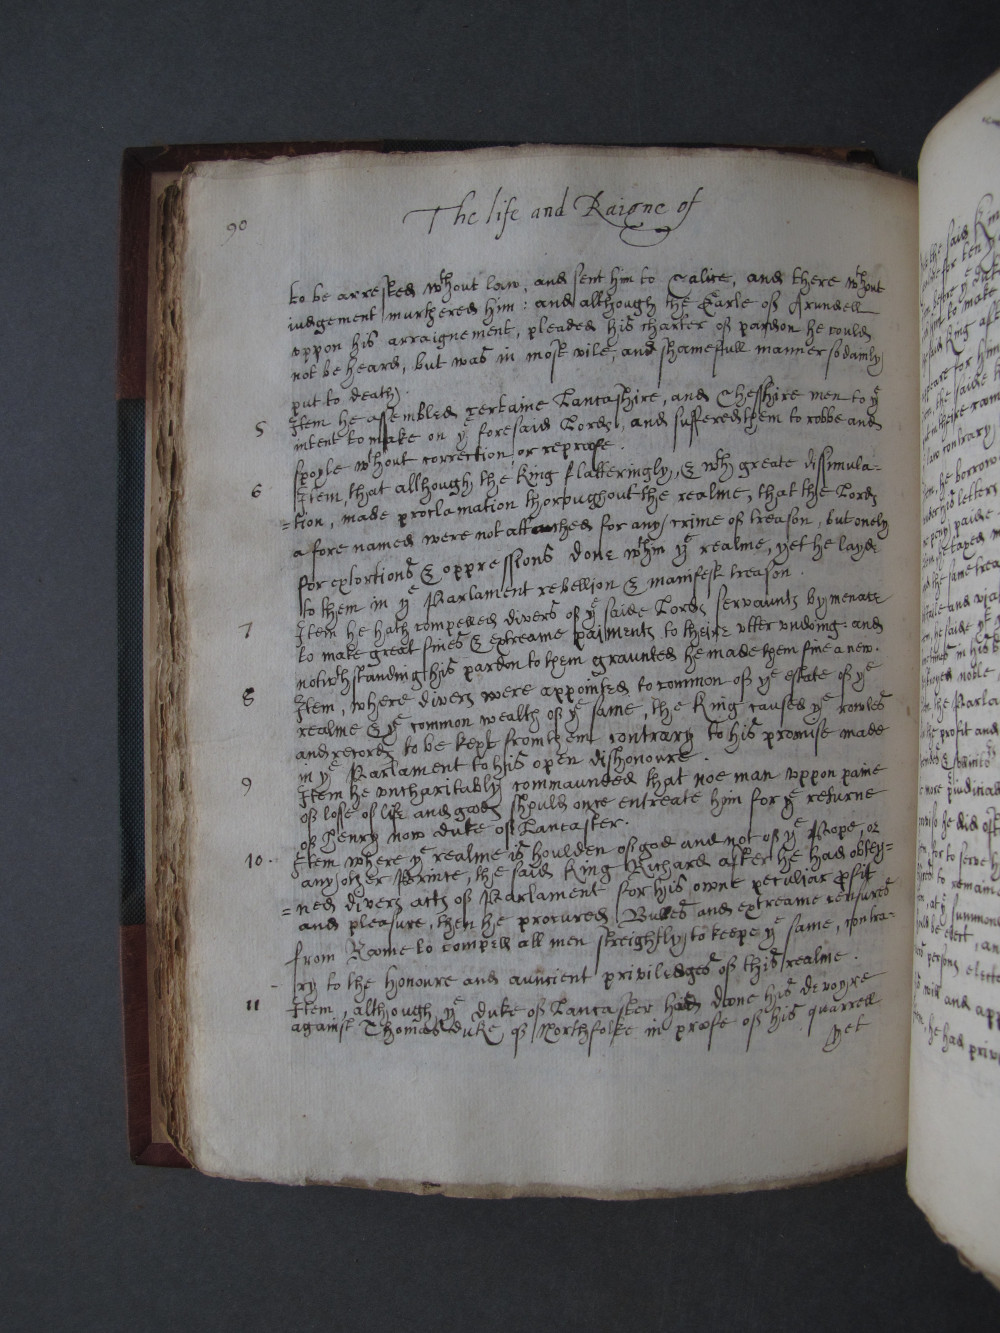 90
The life and Raigne of
to be arrested wthout law, and sent him to Calice, and there wthout
iudgement murthered him: and allthough the Earle of Arundell
vppon his arraignement, pleaded his charter of pardon he could
not be heard, but was in most vile, and shamefull manner sodainly
put to death.
5 Item he assembled certaine Lancashire, and Cheshire men to ye
intent to make on ye foresaid Lords, and suffered them to robbe and
spoyle wthout correction, or reproofe.
6 Item, that allthough the King flatteringly, & wth great dissimula-
=tion, made proclamation thoroughout the realme, that the Lords
a fore named were not attached for any crime of treason, but onely
for extortions & oppressions done wthin ye realme, yet he layde
to them in ye Parlament rebellion & manifest treason.
7 Item he hath compelled divers of ye saide Lords servaunts by menace
to make great fines & extreame paiments to theire vtter vndoing: and
notwthstanding his pardon to them graunted he made them fine a new.
8 Item, where divers were appointed to common of ye estate of ye
realme & ye common wealth of ye same, the King caused ye rowles
and records to be kept from them contrary to his promise made
in ye Parlament to his open dishonoure.
9 Item he vncharitably commaunded that noe man vppon paine
of losse of life and goods should once entreate him for ye returne
of Henry now duke of Lancaster.
10. Item where ye realme is houlden of god and not of ye Pope, or
any other Prince, the said King Richard after he had obtey=
=ned divers acts of Parlament for his owne peculiar profit
and pleasure, then he procured Bulles and extreame censures
from Rome to compell all men streightly to keepe ye same, contra-
ry to the honoure and auncient priviledges of this realme.
11 Item, although ye duke of Lancaster had done his devoyre
against Thomas duke of Northfolke in proofe of his quarrell
yet